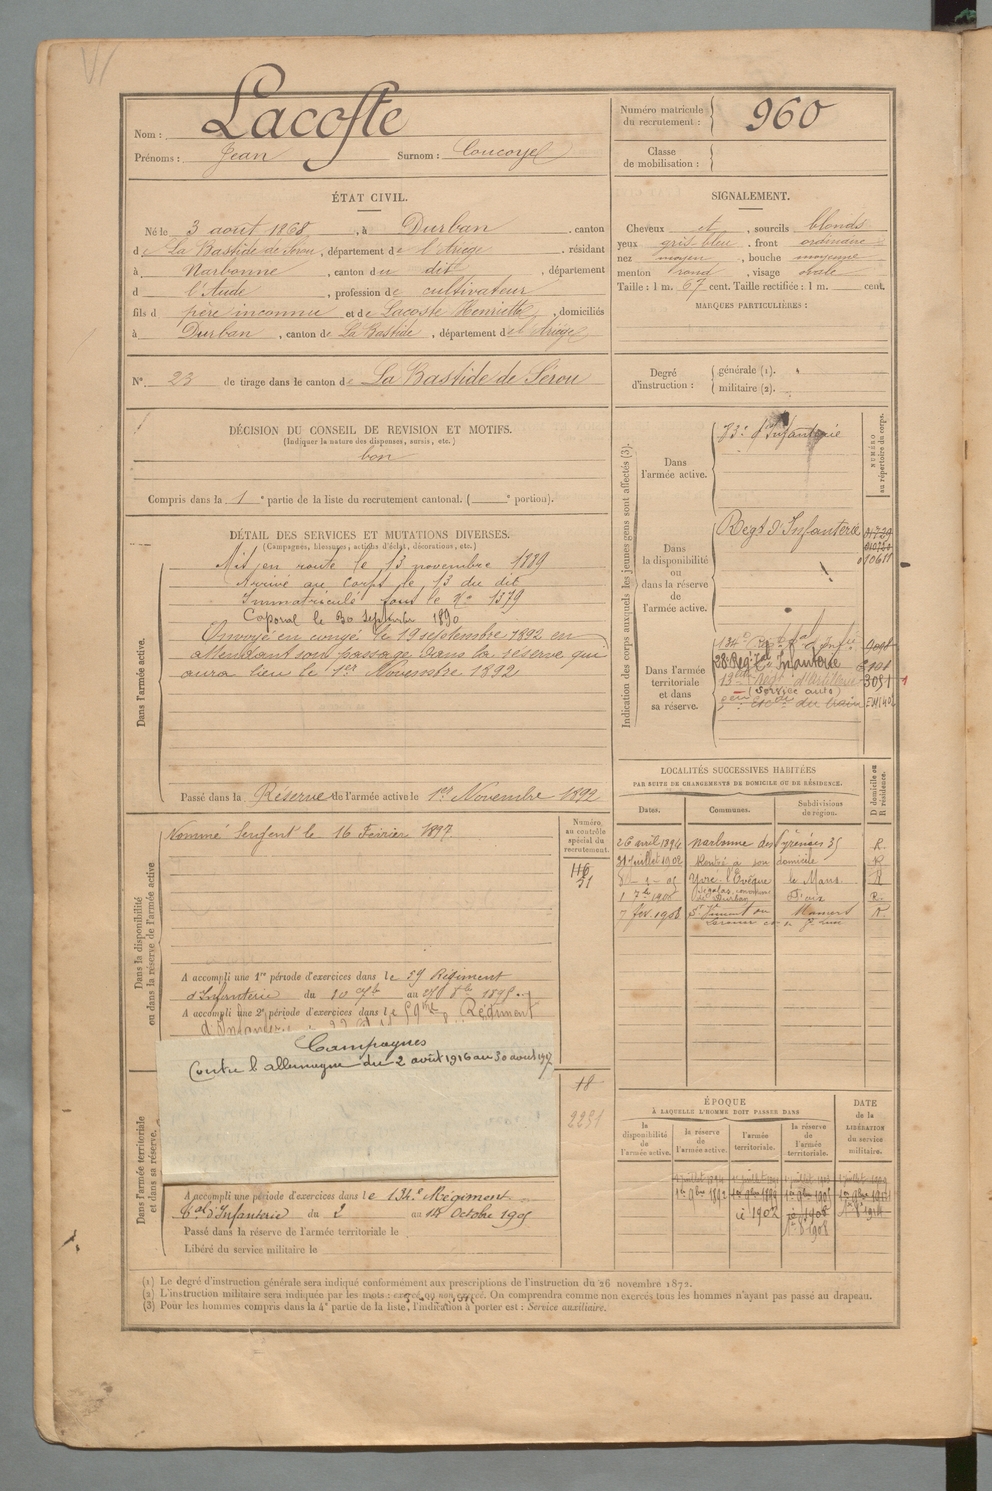 Lacoste
Nom :
Prénoms : Jean Surnom :
Numéro matricule du recrutement : 960
Classe de mobilisation :
ÉTAT CIVIL.
Né le 3 août 1868, à Durban, canton
de La Bastide de Sérou, département de l'Ariège, résidant
à Narbonne, canton du dit, département
d l'Aude, profession de cultivateur
fils d père inconnu et de Lacoste Henriette, domiciliés
à Durban, canton de La Bastide, département de l'Ariège
N° 23 de tirage dans le canton de La Bastide de Sérou
SIGNALEMENT.
Cheveux et, sourcils blonds
yeux gris bleu, front ordinaire
nez moyen, bouche moyenne
menton rond, visage ovale
Taille : 1 m. 67 cent. Taille rectifiée : 1 m. cent.
MARQUES PARTICULIÈRES :
Degré d'instruction : générale (1).
militaire (2).
DÉCISION DU CONSEIL DE REVISION ET MOTIFS.
(Indiquer la nature des dispenses, sursis, etc.)
bon
Compris dans la 1e partie de la liste du recrutement cantonal. ( e portion).
DÉTAIL DES SERVICES ET MUTATIONS DIVERSES.
(Campagnes, blessures, actions d'éclat, décorations, etc.)
Dans l'armée active.
Mis en route le 13 novembre 1889
Arrivé au corps le 13 du dit
Immatriculé sous le N° 1379
Caporal le 30 Septembre 1890
Envoyé en congé le 19 septembre 1892 en
attendant son passage dans la réserve qui
aura lieu le 1er Novembre 1892
Passé dans la Réserve de l'armée active le 1er Novembre 1892
Indication des corps auxquels les jeunes gens sont affectés (3).
NUMÉRO au répertoire du corps.
Dans l'armée active.
d'Infanterie
Dans la disponibilité ou dans la réserve de l'armée active.
Regt d'Infanterie
010611
Dans l'armée territoriale et dans sa réserve.
Infanterie
3051
(Service auto)
du train
LOCALITÉS SUCCESSIVES HABITÉES
PAR SUITE DE CHANGEMENTS DE DOMICILE OU DE RÉSIDENCE.
Dates. Communes. Subdivisions de région. D domicile ou R résidence.
26 avril 1894 Narbonne des Pyrénées 35 R.
31 Juillet 1902 Rentré à son domicile R
Yvré l'Evêque le Mans R
1908 Durban Foix
7 fév. 1908 St Vincent Mamers R
Dans la disponibilité ou dans la réserve de l'armée active
Numéro au contrôle spécial du recrutement.
Nommé Sergent le 16 Février 1897.
A accompli une 1re période d'exercices dans le 59 Régiment
d'Infanterie du 10 au 1895
A accompli une 2e période d'exercices dans le 59me Régiment
d'Infanterie
Campagnes
Contre l'allemagne du 2 août 1916 au 30 août 1917
Dans l'armée territoriale et dans sa réserve.
18
2251
A accompli une période d'exercices dans le 134e Régiment
d'Infanterie du 2 au Octobre 1905
Passé dans la réserve de l'armée territoriale le
Libéré du service militaire le
ÉPOQUE
À LAQUELLE L'HOMME DOIT PASSER DANS
DATE de la LIBÉRATION du service militaire.
la disponibilité de l'armée active. la réserve de l'armée active. l'armée territoriale. la réserve de l'armée territoriale.
(1) Le degré d'instruction générale sera indiqué conformément aux prescriptions de l'instruction du 26 novembre 1872.
(2) L'instruction militaire sera indiquée par les mots : exercé ou non exercé. On comprendra comme non exercés tous les hommes n'ayant pas passé au drapeau.
(3) Pour les hommes compris dans la 4e partie de la liste, l'indication à porter est : Service auxiliaire.